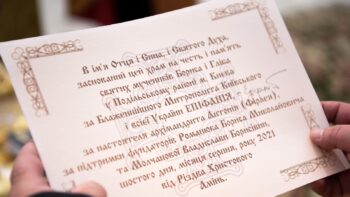 В ім'я Отця і Сина, і Святого Духа,
заснований цей храм на честь і пам'ять
святих мучеників Бориса і Гліба
у Подільському районі м. Києва
за Блаженнішого Митрополита Київського
і всієї України ЕПІФАНІЯ,
за настоятеля архімандрита Євгенія (Фізера),
за підтримки фундаторів Романюка Бориса Миколайовича
та Молчанової Владислави Борисівни,
шостого дня, місяця серпня, року 2021
від Різдва Христового
Амінь.